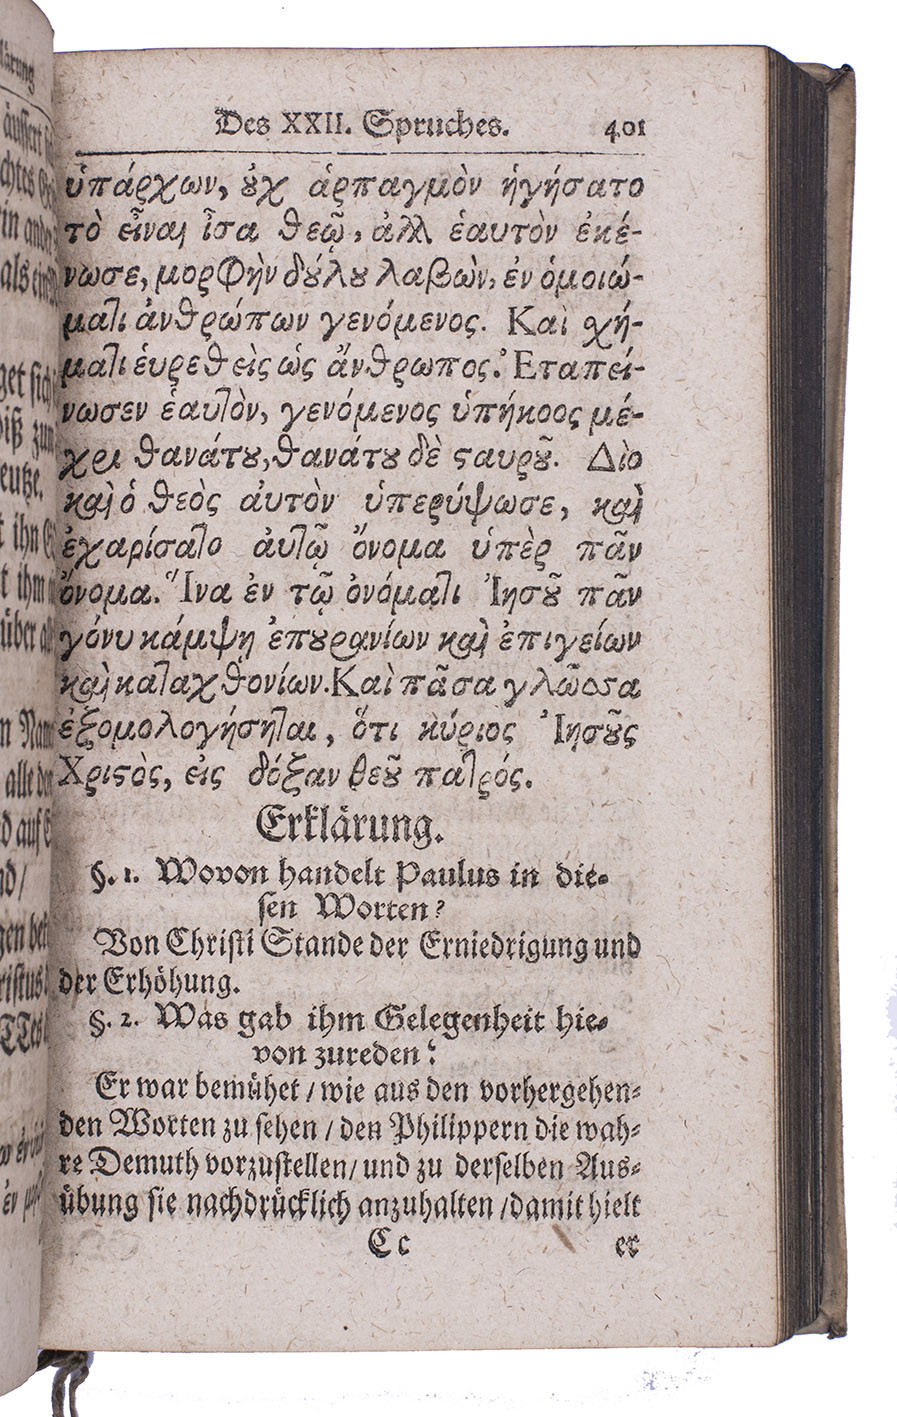 Des XXII. Spruches. 401
ὑπάρχων, ȣ̓χ ἁρπαγμὸν ἡγήσατο
τὸ εἶναι ἶσα θεῷ, ἀλλ ἑαυτὸν ἐκέ-
νωσε, μορφὴν δȣ́λȣ λαβὼν, ἐν ὁμοιώ-
ματι ἀνθρώπων γενόμενος. Καὶ χή-
ματι ἑυρεθεὶς ὡς ἄνθρωπος. Ἐταπεί-
νωσεν ἑαυτὸν, γενόμενος ὑπήκοος μέ-
χρι θανάτȣ, θανάτȣ δὲ ϛαυρȣ͂. Διὸ
καὶ ὁ θεὸς ἀυτὸν ὑπερύψωσε, καὶ
ἐχαρίσατο ἀυτῷ ὄνομα ὑπὲρ πᾶν
ὄνομα. Ἵνα ἐν τῷ ὀνόματι Ἰησȣ͂ πᾶν
γόνυ κάμψῃ ἐπȣρανίων καὶ ἐπιγείων
καὶ καταχθονίων. Καὶ πᾶσα γλῶσσα
ἐξομολογήσηται, ὅτι κύριος Ἰησȣ͂ς
Χριϛὸς, εἰς δόξαν θεȣ͂ πατρός.
Erklärung.
§. 1. Wovon handelt Paulus in die-
sen Worten?
Von Christi Stande der Erniedrigung und
der Erhöhung.
§. 2. Was gab ihm Gelegenheit hie-
von zureden?
Er war bemühet / wie aus den vorhergehen-
den Worten zu sehen / den Philippern die wah-
re Demuth vorzustellen / und zu derselben Aus-
übung sie nachdrücklich anzuhalten / damit hielt
Cc er